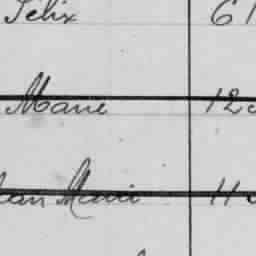 Félix 61
Marie 12
Jean Marie 11